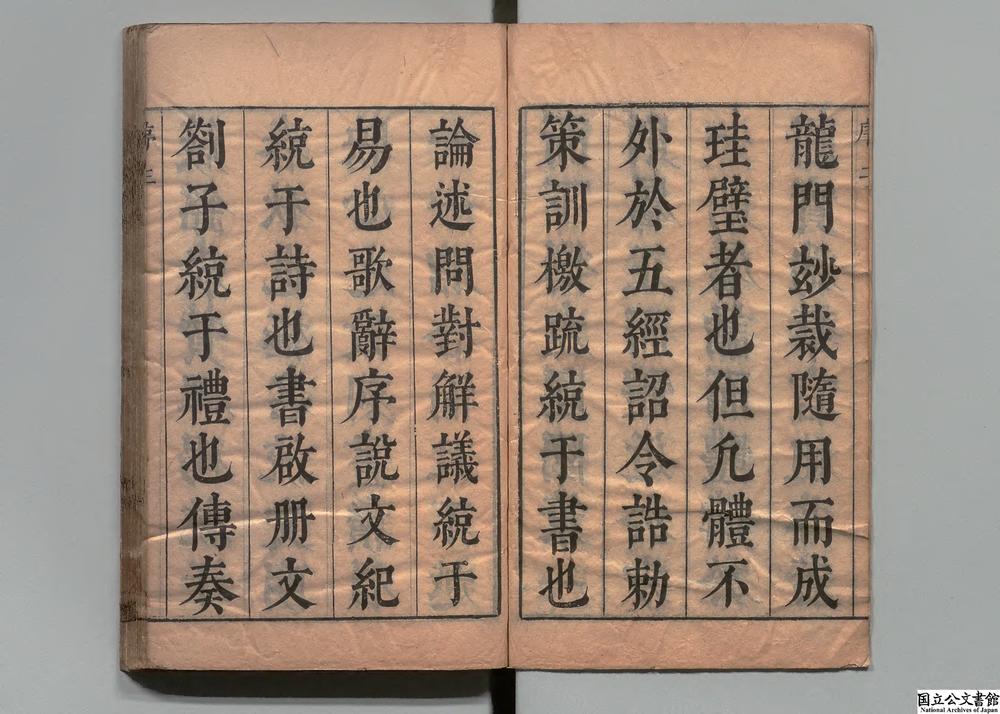 龍門玅裁隨用而成
珪璧者也但凢體不
外於五經詔令誥勅
策訓檄䟽統于書也
論述問對解議統于
易也歌辭序說文紀
統于詩也書啟册文
劄子統于禮也傳奏
序二
序三
国立公文書館
National Archives of Japan